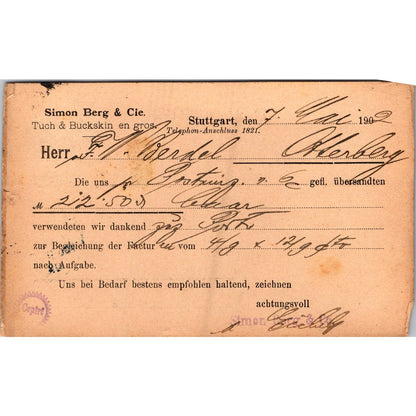 Simon Berg & Cie.
Tuch & Buckskin en gros.
Stuttgart, den 7. Mai 1902
Telephon-Anschluss 1821.
Herr F. W. Berdel Otterberg
Die uns p Postanw. v. 6/5 gefl. übersandten
M 212.50
verwendeten wir dankend Porto
zur Begleichung der Factur en vom 4/8 & 12/9
nach Aufgabe.
Uns bei Bedarf bestens empfohlen haltend, zeichnen
achtungsvoll
Copirt
Simon Berg & Cie.